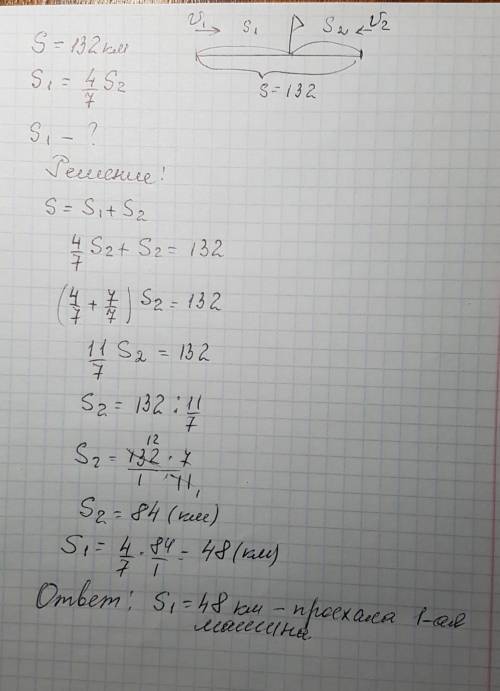 S = 132 км
S₁ = 4/7 S₂
S₁ - ?
v₁ → S₁ S₂ ← v₂
S = 132
Решение!
S = S₁ + S₂
4/7 S₂ + S₂ = 132
(4/7 + 7/7) S₂ = 132
11/7 S₂ = 132
S₂ = 132 : 11/7
12
S₂ = 132 · 7
1 · 11 1
S₂ = 84 (км)
S₁ = 4/7 · 84/1 = 48 (км)
Ответ: S₁ = 48 км - проехала 1-ая
машина